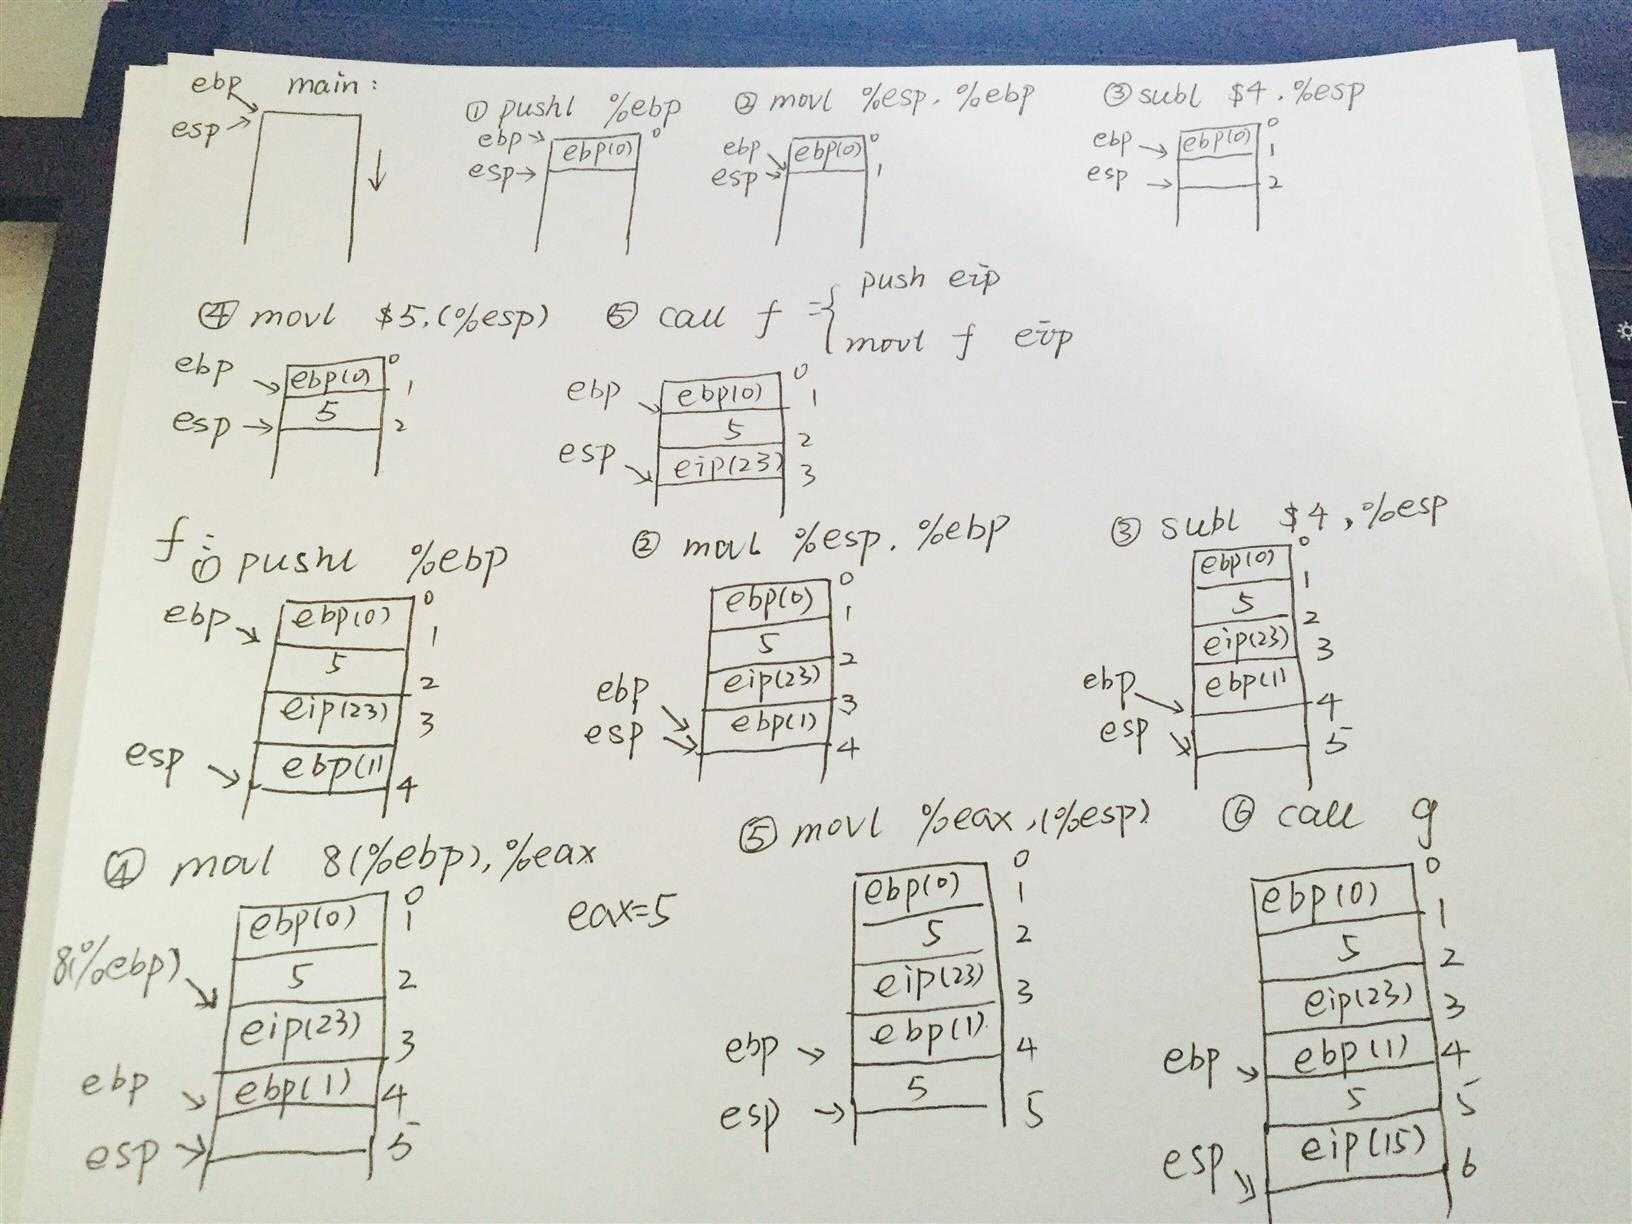 ebp main:
esp
① pushl %ebp
ebp
esp
ebp(0) 0
② movl %esp, %ebp
ebp
esp
ebp(0) 0
1
③ subl $4, %esp
ebp
esp
ebp(0) 0
1
2
④ movl $5, (%esp)
ebp
esp
ebp(0) 0
1
5
2
⑤ call f = { push eip
movl f eip
ebp
esp
ebp(0) 0
1
5
2
eip(23)
3
f:
① pushl %ebp
ebp
esp
ebp(0) 0
1
5
2
eip(23)
3
ebp(1)
4
② movl %esp, %ebp
ebp
esp
ebp(0) 0
1
5
2
eip(23)
3
ebp(1)
4
③ subl $4, %esp
ebp
esp
ebp(0) 0
1
5
2
eip(23)
3
ebp(1)
4
5
④ movl 8(%ebp), %eax
eax=5
8(%ebp)
ebp
esp
ebp(0) 0
1
5
2
eip(23)
3
ebp(1)
4
5
⑤ movl %eax, (%esp)
ebp
esp
ebp(0) 0
1
5
2
eip(23)
3
ebp(1)
4
5
5
⑥ call g
ebp
esp
ebp(0) 0
1
5
2
eip(23)
3
ebp(1)
4
5
5
eip(15)
6